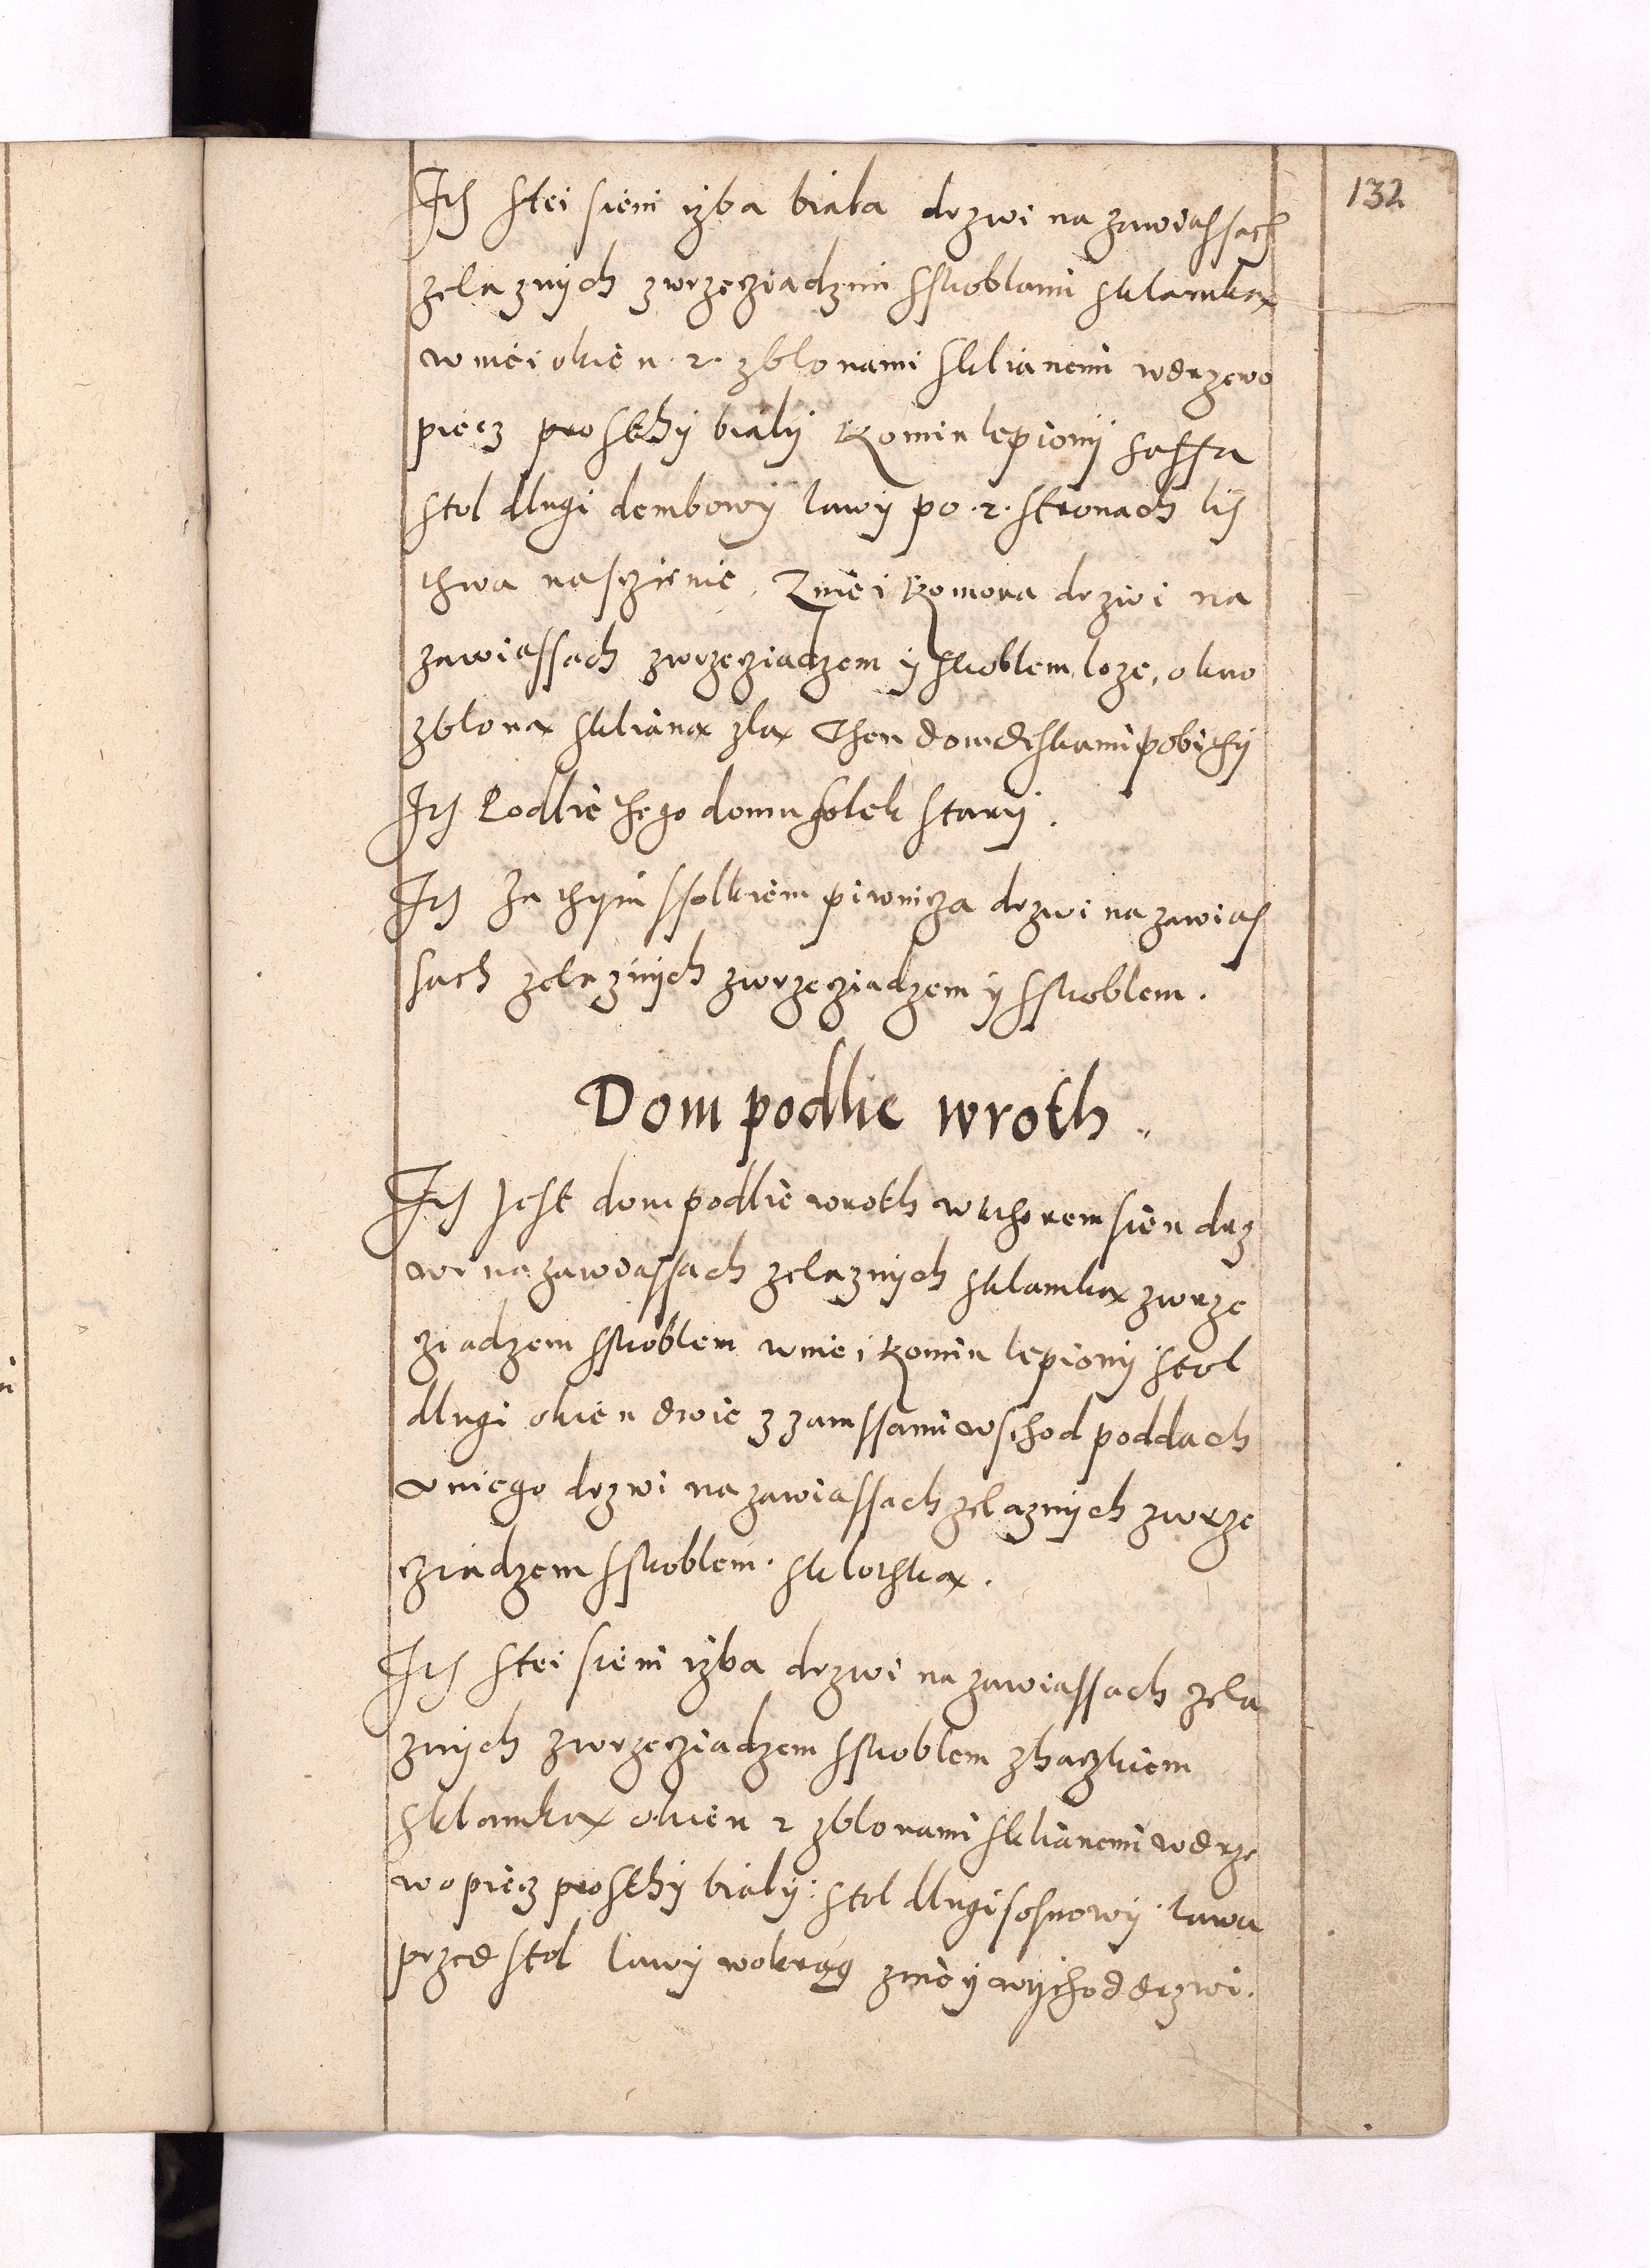 132
Ith stei sieni izba biala drzwi na zawiassach
zelaznych zwrzecziadzmi sskoblami sklamką
w niei okien ·2· zblonami sklianemi wdrzewo
piecz prosthy bialy komin lepiony saffa
stol dlugi dembowy lawy po ·2· stronach lis
thwa nasczienie, Zniei komora drzwi na
zawiassach zwrzecziadzem y skoblem, loze, okno
zbloną sklianą zlą Then dom deskami pobithy
Ith Podlie thego domu solek stary.
Ith Za thym ssolkiem piwnicza drzwi na zawias
sach zelaznych zwrzecziadzem y sskoblem.
Dom podlie wroth
Ith Jest dom podlie wroth w kthorem sien drz
wi na zawiassach zelaznych sklamką zwrze
cziadzem sskoblem wniei komin lepiony stol
dlugi okien dwie z zamssami wschod poddach
v niego drzwi na zawiassach zelaznych zwrze
cziadzem sskoblem · sklothką.
Ith stei sieni izba drzwi na zawiassach zela
znych zwrzecziadzem sskoblem zhaczkiem
sklamką okien 2 zblonami sklianemi wdrze
wo piecz prosthy bialy: stol dlugi sosnowy · lawa
przed stol lawy wokrąg zniey wychod drzwi.